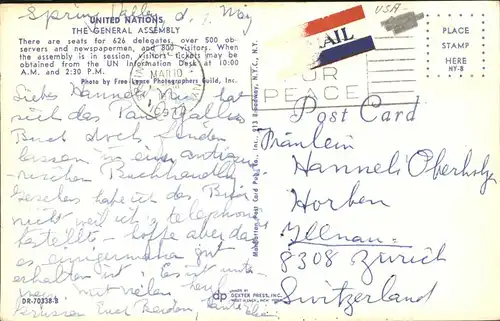 Spring Valley d. 7. May
USA-
UNITED NATIONS
THE GENERAL ASSEMBLY
There are seats for 626 delegates, over 500 ob-
servers and newspapermen, and 800 visitors. When
the assembly is in session, visitors' tickets may be
obtained from the UN Information Desk at 10:00
A.M. and 2:30 P.M.
Photo by Free Lance Photographers Guild, Inc.
MAIL
PLACE
STAMP
HERE
NY-8
MAY 10
PEACE
Post Card
Liebes Hanneli Nun hat
sich das Paul Gallico
Buch doch finden
lassen in einer antiqua-
rischen Buchhandlung
habe ich das Büch
nicht weil ich's telephon
bestellt - hoffe aber dass
es einigermassen gut
erhalten ist. Es ist unter
mit vielen herzl
Grüssen Euch Beiden,
Fräulein
Hanneli Oberholzer
Horben
Illnau
8308 Zürich
Switzerland
Manhattan Post Card Pub. Co., Inc., 913 Broadway, N.Y.C., N.Y.
DR-70338-B
dp
DEXTER PRESS, INC.
WEST NYACK, NEW YORK